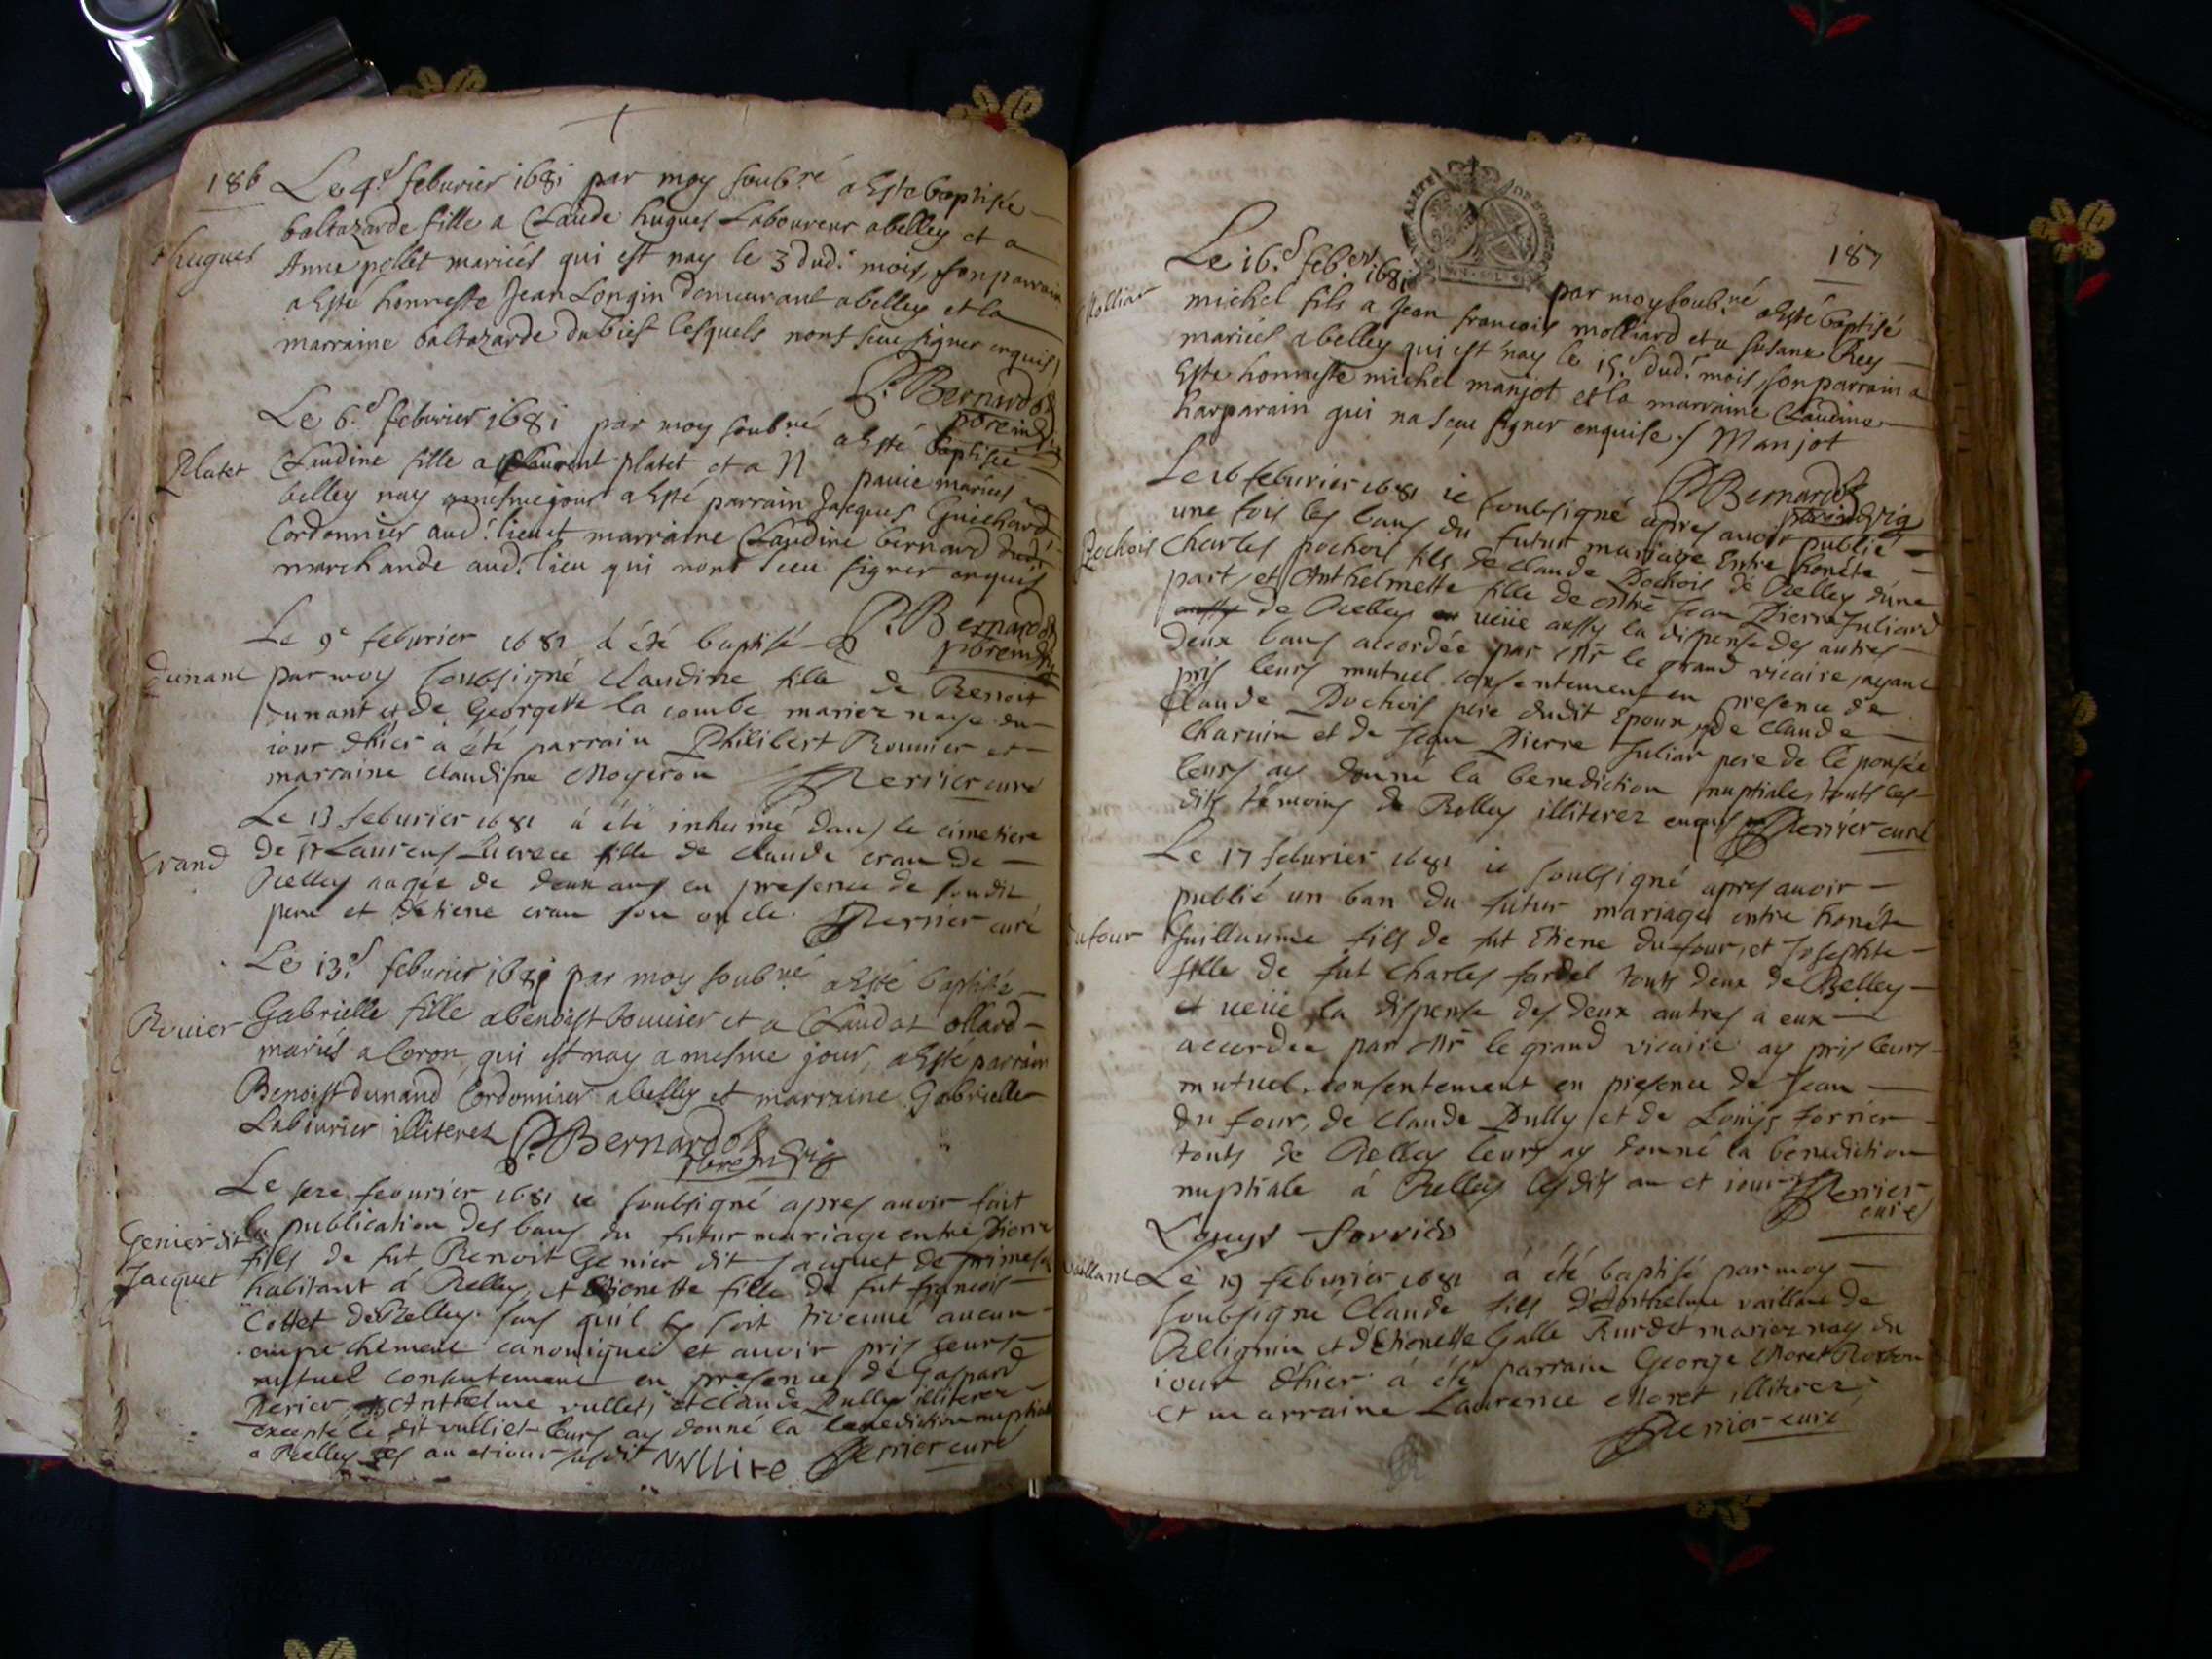 186
Le 4.e feburier 1681 par moy soub.né a esté baptisée
baltazarde fille a Claude hugues Laboureur abelley et a
hugues
Anne pollet mariés qui est nay le 3 dud.t mois, son parrain
a esté honneste Jean Longin demeurant abelley et la
marraine baltazarde dubiest lesquels nont sceu signer enquis
P. Bernardot
Le 6.e feburier 1681 par moy soub.né a esté baptisée
Platet
Claudine fille a Laurent platet et a N pauie mariés a
belley nay a mesme jour a esté parrain Jacques Guichard
Cordonnier aud.t lieu et marraine Claudine bernard
marchande aud.t lieu qui nont sceu signer enquis
P. Bernardot
Le 9e feburier 1681 à été baptisé
dunant
par moy soubsigné claudine fille de Benoit
dunant et de Georgette la combe mariez naye du
iour dhier a été parrain Philibert Rounier et
marraine claudine Moyeron Perrier curé
Le 13 feburier 1681 à été inhumé dans le cimetiere
de st Laurens Lucrece fille de claude cran de
crand
Belley aagée de deux ans en presence de sondit
pere et detiene cran son oncle. Perrier curé
Le 13.e feburier 1681 par moy soub.né a esté baptisée
Bouier
Gabrielle fille abenoist bouuier et a Claudat ollard
mariés a Coron, qui est nay a mesme jour, a esté parrain
Benoist dunand Cordonnier abelley et marraine Gabrielle
Labiurier illiterez P. Bernardot
Le seze feburier 1681 ie soubsigné apres auoir fait
la publication des bans du futur mariage entre Pierre
Genier dit
fils de fut Benoit Genier dit Jacquet de
Jacquet
habitant à Belley, et Etionette fille de fut francois
Cottet de Belley sans quil sy soit trouué aucun
empechement canonique et auoir pris leurs
mutuel consentement en presence de Gaspard
Perier Anthelme vullet, et claude Pully illiterez
excepté le dit vulliet leurs ay donné la benediction nuptiale
a Belley les an et iour susdit vvllie Perrier curé
187
Le 16.e feb.er 1681 par moy soub.né a esté baptisé
Molliar
michel fils a Jean francois molliard et a susane Rey
mariés abelley qui est nay le 15.e dud.t mois, son parrain a
Esté honneste michel manjot et la marraine Claudine
harparain qui na sceu signer enquise / Manjot
P Bernardot
Le 16 feburier 1681 ie soubsigné apres auoir publié
une fois les bans du futur mariage entre honéte
Pochois
Charles pochois fils de claude Pochois de Belley dune
part, et Anthelmette fille de Jean Pierre Juliard
de Belley veüe aussy la dispense des autres
deux bans accordée par Mr le grand vicaire, ayant
pris leurs mutuel consentement en presence de
Claude Pochois pere dudit Epoux, de claude
Charuin et de Jean Pierre Juliar pere de lé pousée
leurs ay donné la benediction nuptiale, touts les
dits témoins de Belley illiterez enquis Perrier curé
Le 17 feburier 1681 ie soubsigné apres auoir
publié un ban du futur mariage entre honéte
dufour
Guillaume fils de fut Etiene du four, et Josephte
fille de fut Charles fardel touts deux de Belley
et veüe la dispense des deux autres a eux
accordée par Mr le grand vicaire ay pris leurs
mutuel consentement en presence de Jean
du four, de claude Pully et de Louijs forrier
touts de Belley leurs ay donné la benediction
nuptiale à Belley lesdits an et iour Perrier
curé
Louys
Vaillant
Le 19 feburier 1681 à été baptisé par moy
soubsigné Claude fils d'Anthelme vaillant de
Belignin et d'Etionette Galle Burdet mariez nay du
iour d'hier à été parrain George Moret
et marraine Laurence Moret illiterez
Perrier curé